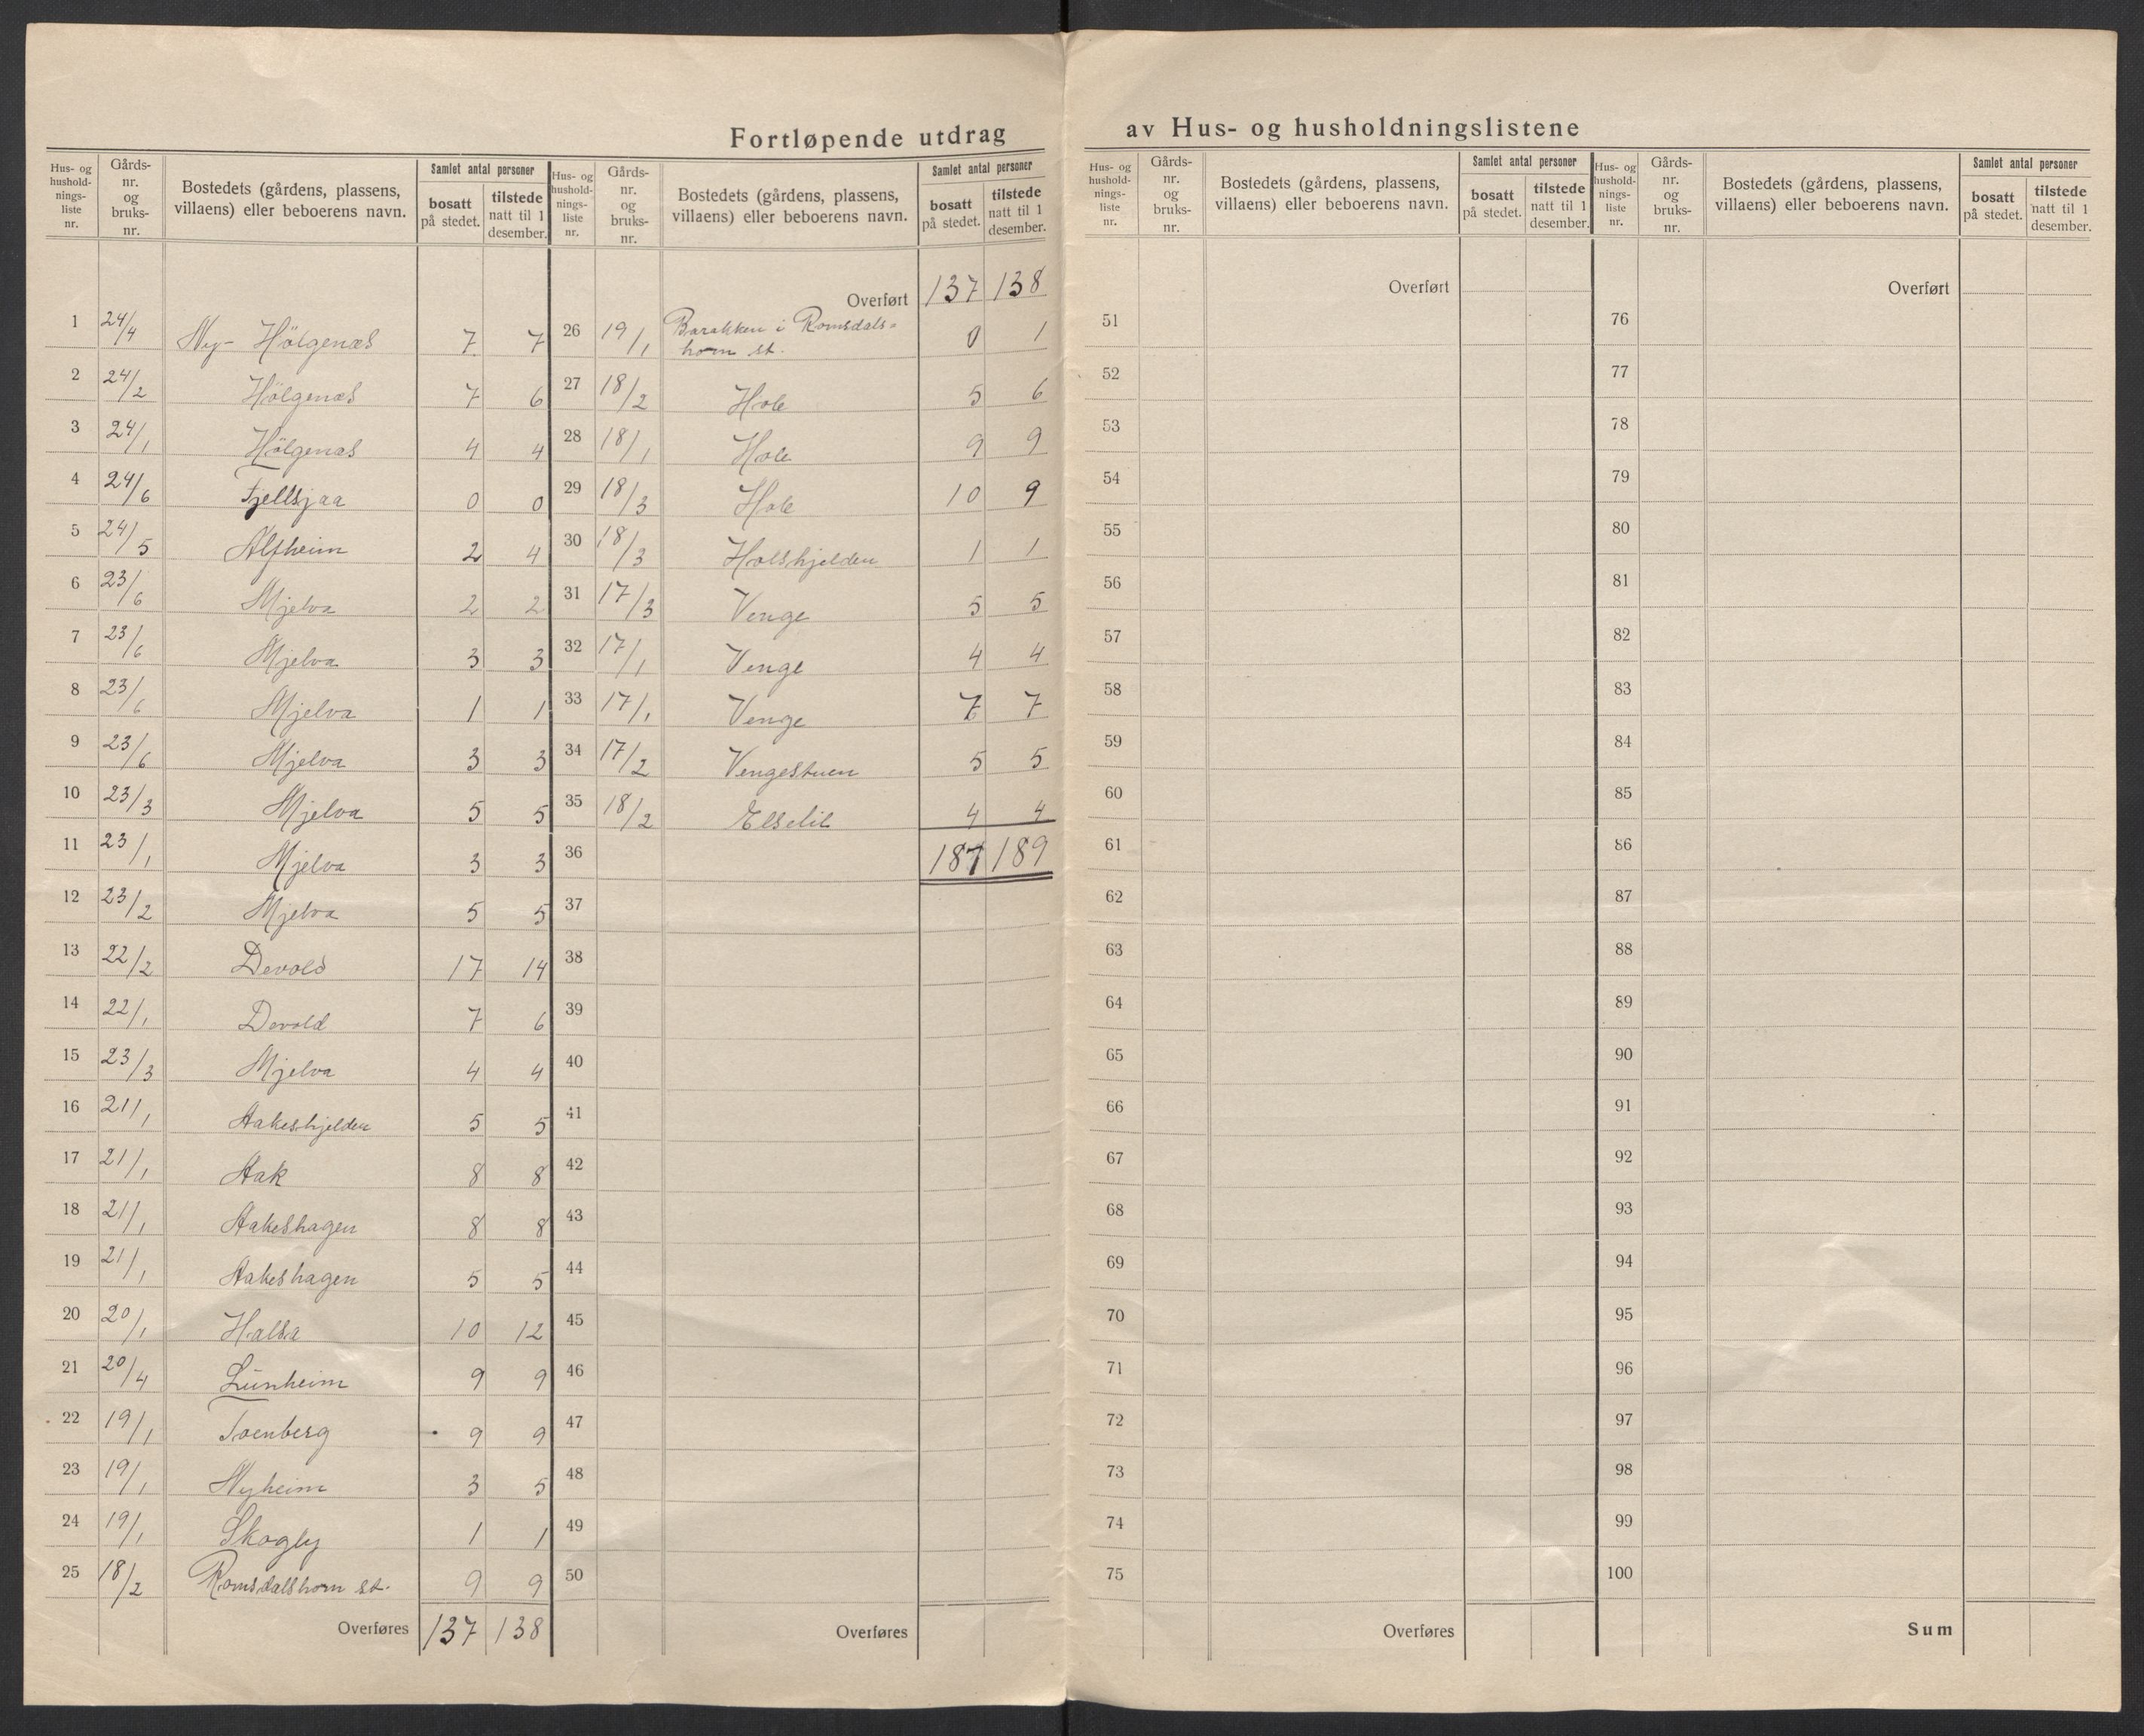 Fortløpende utdrag av Hus- og husholdningslistene
Hus- og hushold-nings-liste nr. | Gårds-nr. og bruks-nr. | Bostedets (gårdens, plassens, villaens) eller beboerens navn. | Samlet antal personer | bosatt på stedet. | tilstede natt til 1 desember.
1 24/4 Ny- Hölgenæs 7 7
2 24/2 Hölgenæs 7 6
3 24/1 Hölgenæs 4 4
4 24/6 Fjellsjaa 0 0
5 24/5 Alfheim 2 4
6 23/6 Mjelva 2 2
7 23/6 Mjelva 3 3
8 23/6 Mjelva 1 1
9 23/6 Mjelva 3 3
10 23/3 Mjelva 5 5
11 23/1 Mjelva 3 3
12 23/2 Mjelva 5 5
13 22/2 Devold 17 14
14 22/1 Devold 7 6
15 23/3 Mjelva 4 4
16 21/1 Aakeshjelden 5 5
17 21/1 Aak 8 8
18 21/1 Aakeshagen 8 8
19 21/1 Aakeshagen 5 5
20 20/1 Halsa 10 12
21 20/4 Lunheim 9 9
22 19/1 9 9
23 19/1 Nyheim 3 5
24 19/1 Skogly 1 1
25 18/2 Romsdalshorn st. 9 9
Overføres 137 138
Hus- og hushold-nings-liste nr. | Gårds-nr. og bruks-nr. | Bostedets (gårdens, plassens, villaens) eller beboerens navn. | Samlet antal personer | bosatt på stedet. | tilstede natt til 1 desember.
Overført 137 138
26 19/1 Barakken i Romsdals=
horn st. 0 1
27 18/2 Hole 5 6
28 18/1 Hole 9 9
29 18/3 Hole 10 9
30 18/3 Holshjelden 1 1
31 17/3 Venge 5 5
32 17/1 Venge 4 4
33 17/1 Venge 7 7
34 17/2 Vengestuen 5 5
35 18/2 Elselil 4 4
36 187 189
37
38
39
40
41
42
43
44
45
46
47
48
49
50
Overføres
Hus- og hushold-nings-liste nr. | Gårds-nr. og bruks-nr. | Bostedets (gårdens, plassens, villaens) eller beboerens navn. | Samlet antal personer | bosatt på stedet. | tilstede natt til 1 desember.
Overført
51
52
53
54
55
56
57
58
59
60
61
62
63
64
65
66
67
68
69
70
71
72
73
74
75
Overføres
Hus- og hushold-nings-liste nr. | Gårds-nr. og bruks-nr. | Bostedets (gårdens, plassens, villaens) eller beboerens navn. | Samlet antal personer | bosatt på stedet. | tilstede natt til 1 desember.
Overført
76
77
78
79
80
81
82
83
84
85
86
87
88
89
90
91
92
93
94
95
96
97
98
99
100
Sum